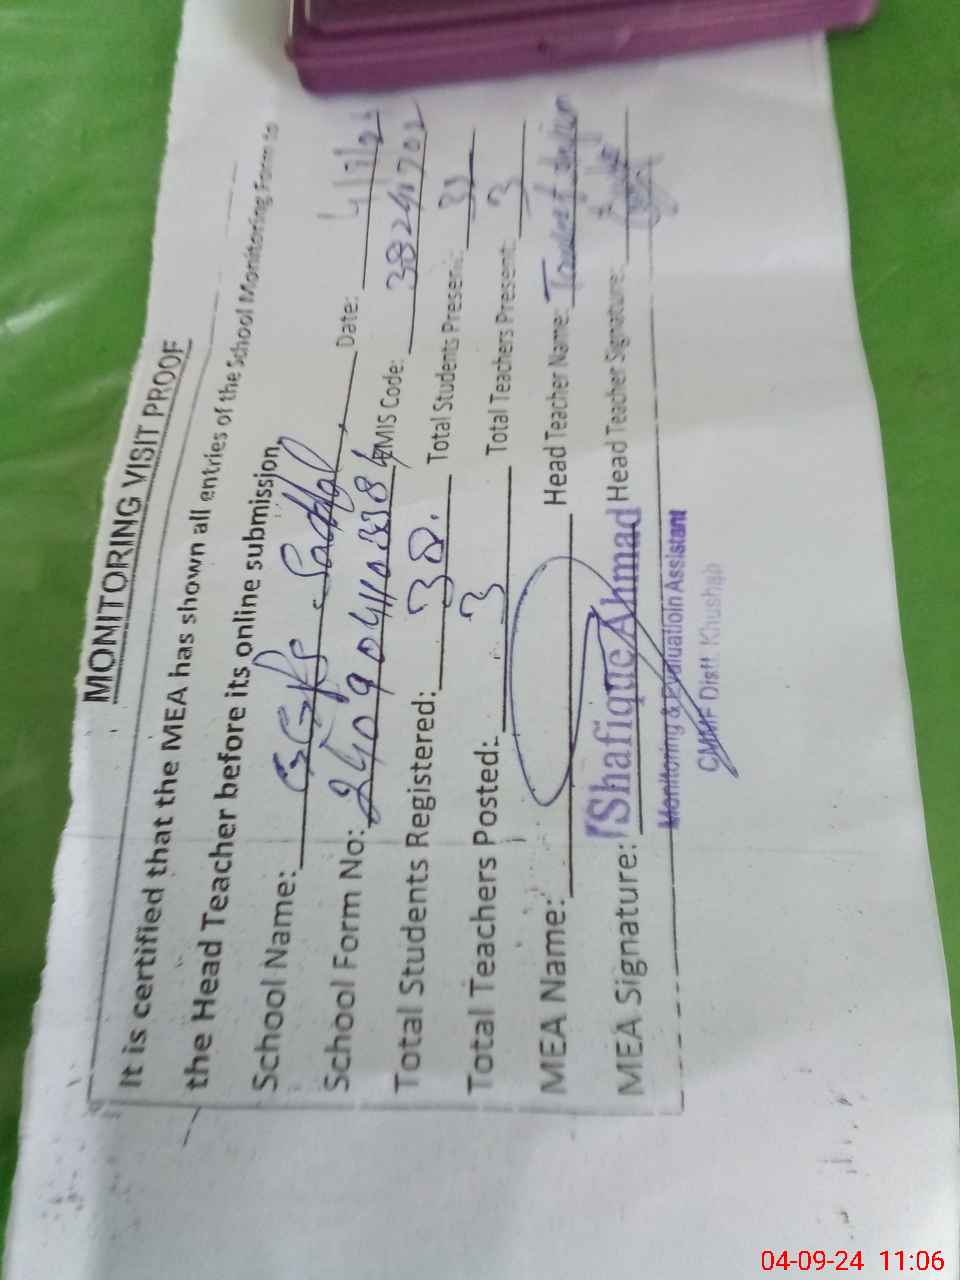 MONITORING VISIT PROOF
It is certified that the MEA has shown all entries of the School Monitoring Form to
the Head Teacher before its online submission
School Name: Date:
School Form No: EMIS Code: 38241702
Total Students Registered: 38. Total Students Present: 33
Total Teachers Posted: 3 Total Teachers Present: 3
MEA Name: Head Teacher Name:
MEA Signature: Head Teacher Signature:
Shafique Ahmad
Monitoring & Evaluatioin Assistant
CMMF Distt. Khushab
04-09-24 11:06